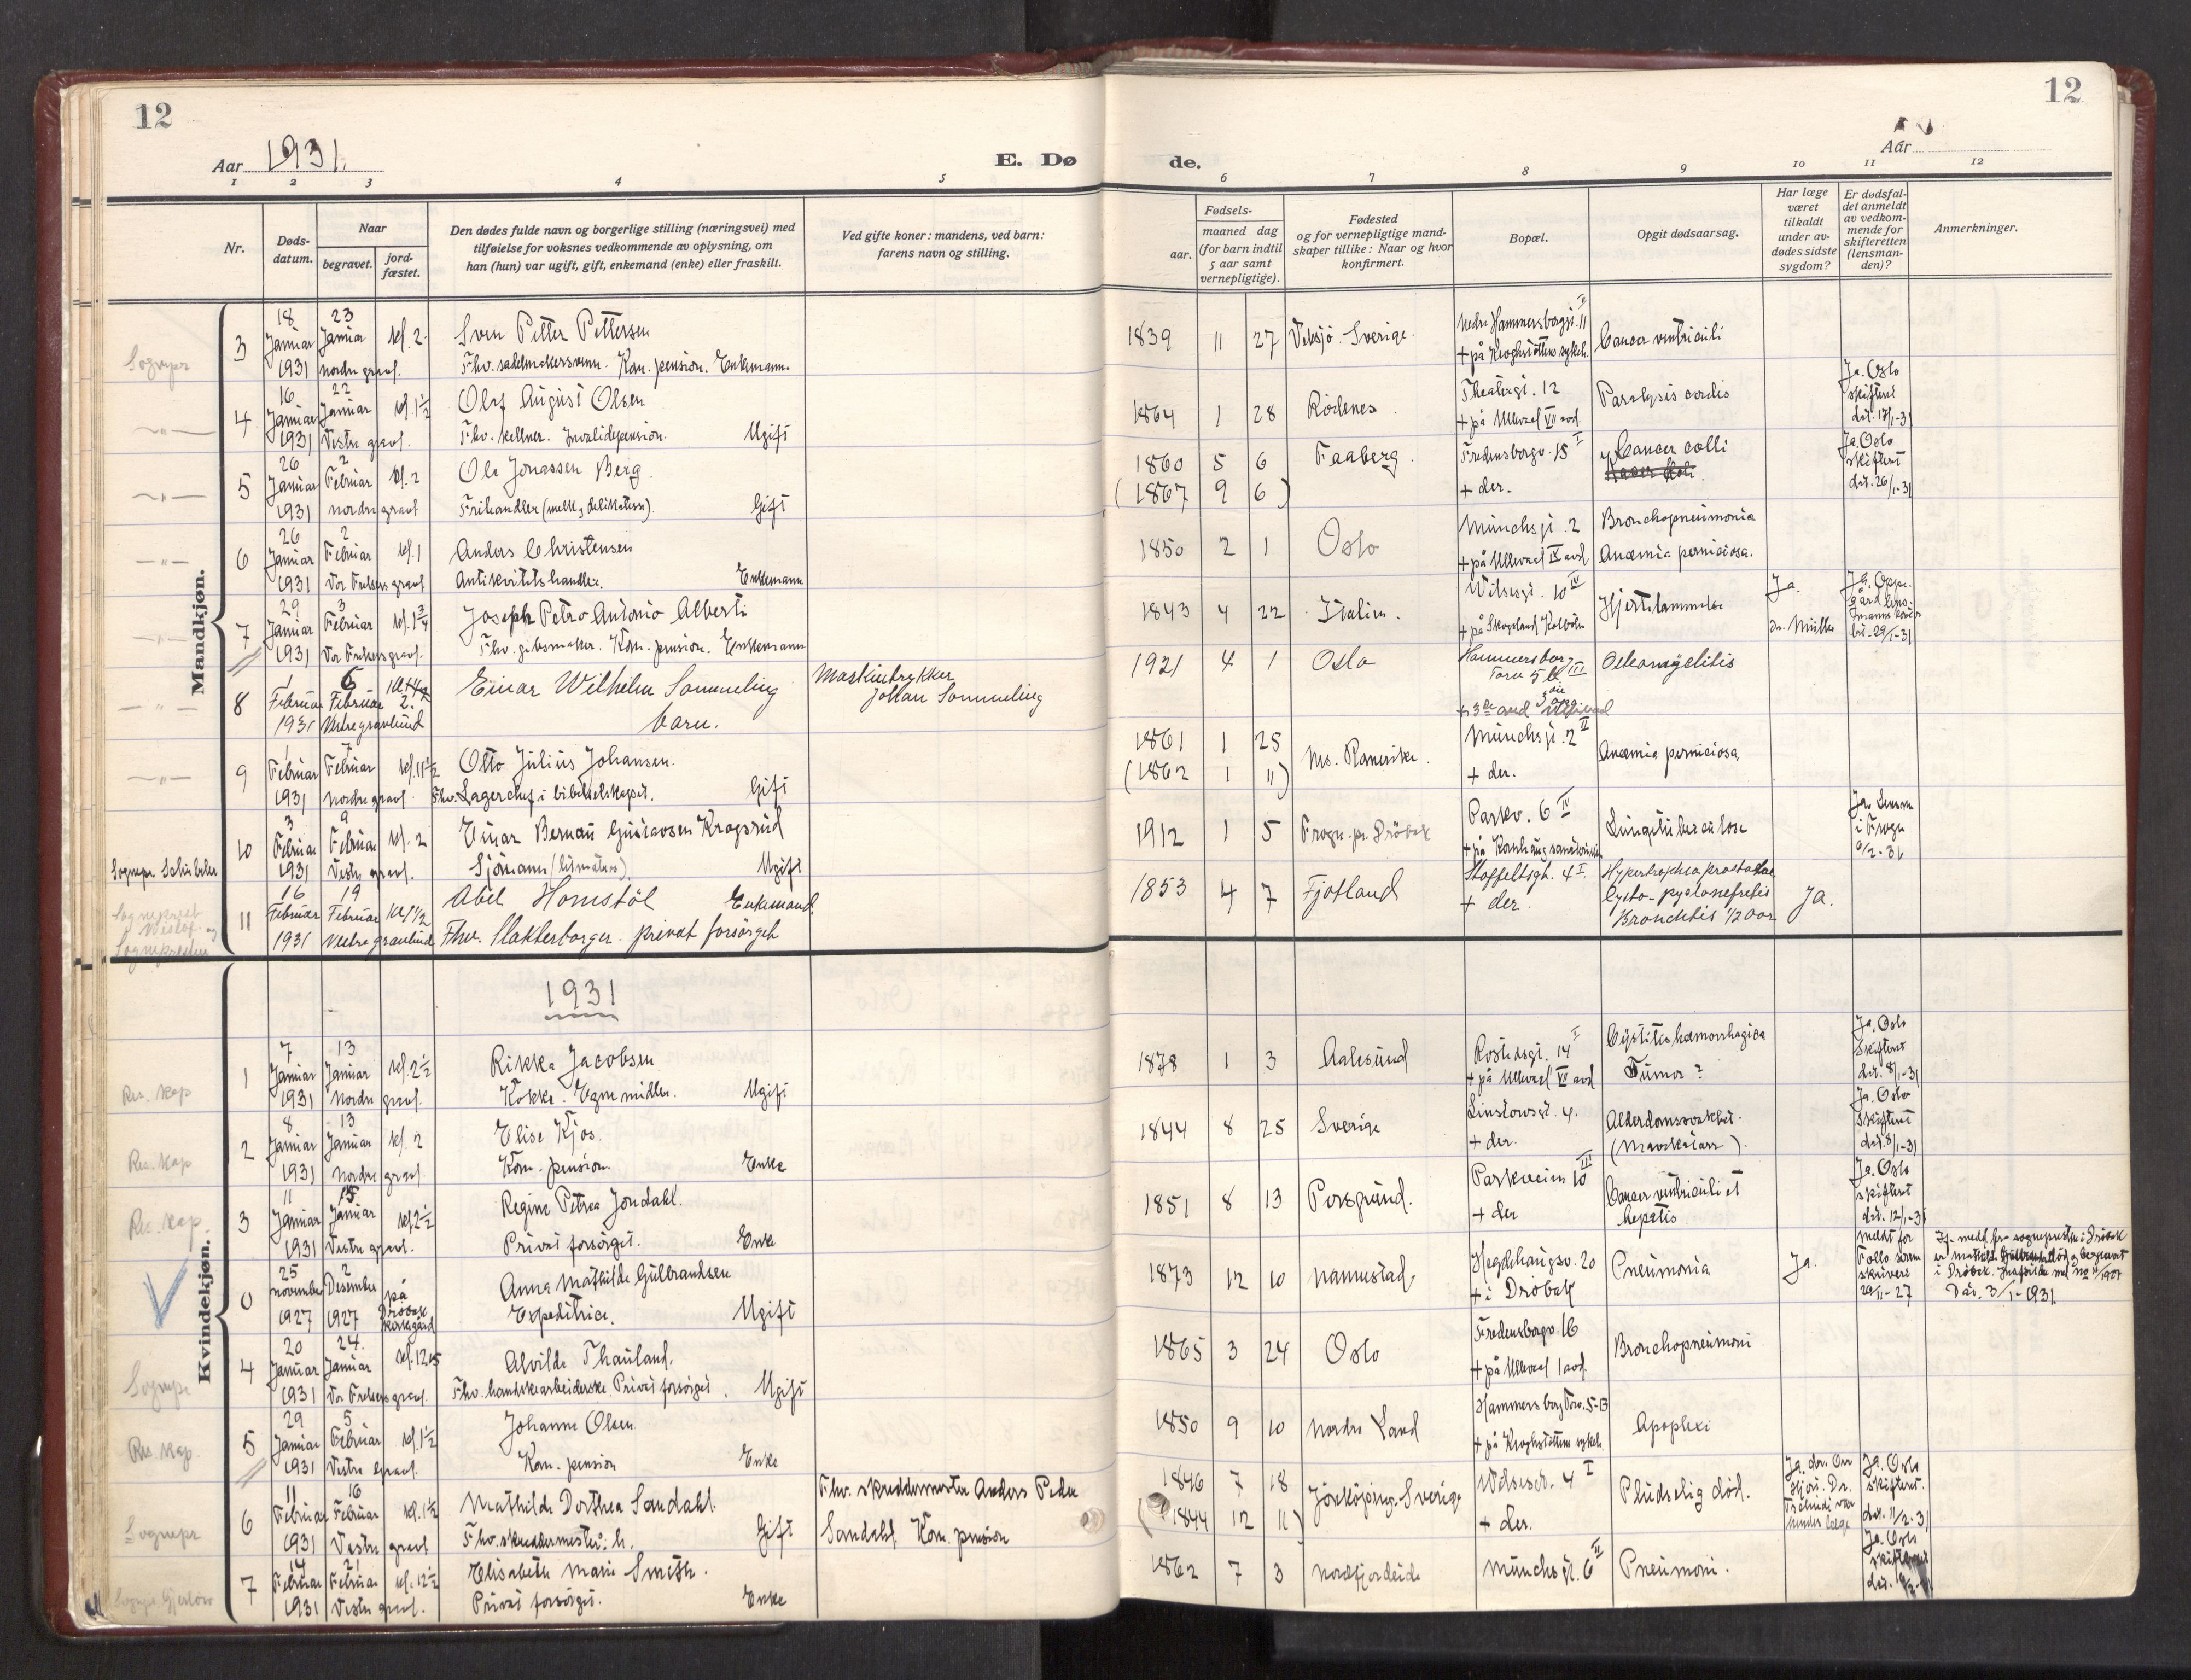 12
12
Aar 1931.
E. Dø
de.
Aar
1 2 3 4 5 6 7 8 9 10 11 12
Nr.
Døds-
datum.
Naar
begravet.
jord-
fæstet.
Den dødes fulde navn og borgerlige stilling (næringsvei) med
tilføielse for voksnes vedkommende av oplysning, om
han (hun) var ugift, gift, enkemand (enke) eller fraskilt.
Ved gifte koner: mandens, ved barn:
farens navn og stilling.
Fødsels-
aar. maaned dag
(for barn indtil
5 aar samt
vernepligtige).
Fødested
og for vernepligtige mand-
skaper tillike: Naar og hvor
konfirmert.
Bopæl.
Opgit dødsaarsag.
Har læge
været
tilkaldt
under av-
dødes sidste
sygdom?
Er dødsfal-
det anmeldt
av vedkom-
mende for
skifteretten
(lensman-
den)?
Anmerkninger.
Mandkjøn.
Sognepr
3 18 Januar 1931 23 Januar nordre gravl. kl. 2
Sven Petter Pettersen
Fhv. sadelmakersvenn. Kom. pension. Enkemann.
1839 11 27 Veksjö. Sverige. Nedre Hammersborggt. 11
+ på Kroghstøttens sykeh. Cancer ventriculi
4 16 Januar 1931 22 Januar Vestre gravl. kl. 1½
Olaf August Olsen
Fhv. kellner. Invalidepension. Ugift
1864 1 28 Rödenes. Theatergt. 12
+ på Ullevaal VII avd. Paralysis cordis
Ja. Oslo skifterett dat. 17/1-31
5 26 Januar 1931 2 Februar nordre gravl kl. 2
Ole Jonassen Berg.
Frihandler (melk, delikatesse). Gift
1860 5 6 Faaberg. Fredensborgv. 15 I Cancer colli
(1867 9 6) + der.
Ja. Oslo skifterett dat. 26/1-31
6 26 Januar 1931 2 Februar Vor Frelsers gravl kl. 1
Anders Christensen
Antikvitetshandler. Enkemann
1850 2 1 Oslo Munchsgt. 2 Bronchopneumonia
+ på Ullevaal IX avd. Anæmia perniciosa.
7 29 Januar 1931 3 Februar Vor Frelsers gravl. kl. 1¾
Joseph Petro Antonio Alberti
Fhv. gibsmaker. Kom. pension. Enkemann
1843 4 22 Italien. Wilsesgt. 10 IV Hjertelammelse Ja.
dr. Müller
8 1 Februar 1931 6 Februar Vestre gravlund 2.
Einar Wilhelm Sommeling
barn.
Maskintrykker
Johan Sommeling
1921 4 1 Oslo Hammersborg
Torv 5 b III Osteomyelitis
9 1 Februar 1931 7 Februar Nordre gravl. kl. 11½
Otto Julius Johansen.
Fhv. Lagerchef i bibelselskapet. Gift
1861 1 25 Ns. Romerike. Munchsgt. 2 II Anæmia perniciosa
(1862 1 11) + der.
Sognepr. Schübeler
10 3 Februar 1931 9 Februar Vestre gravl. kl. 2
Einar Bernau Gustavsen Krogsrud
Sjömann (letmatros). Ugift
1912 1 5 Frogn pr. Dröbak Parkv. 6 IV Lungetuberculose
+ på Kornhaug sanatorium
Ja. Lensm i Frogn 6/2-31
11 16 Februar 1931 19 Februar Vestre gravlund
Abel Homstöl Enkemand.
Fhv. Slakterborger. privat forsörget
1853 4 7 Fjotland Stoffeltsgt. 4 I. Hypertrophia prostatae
+ der. Cysto-pyelonefritis
Bronchitis 1/2 aar Ja.
1931
Kvindekjøn.
Res. kap
1 7 Januar 1931 13 Januar Nordre gravl. kl. 2½
Rikka Jacobsen
Kokke. Egne midler. Ugift
1878 1 3 Aalesund Rostedsgt. 14 I Cystitis hæmorrhagica
+ på Ullevaal VII avd Tumor?
Ja. Oslo Skifterett dat. 8/1-31
Res. kap
2 8 Januar 1931 13 Januar Nordre gravl. kl. 2
Elise Kjos.
Kom. pension. Enke
1844 8 25 Sverige Linstowsgt. 4. Alderdomssvakhet.
+ der.
Ja. Oslo Skifterett dat. 8/1-31
Res. kap.
3 11 Januar 1931 15 Januar Vestre gravl. kl 2½
Regine Petrea Jondahl.
Privat forsörget. Enke
1851 8 13 Porsgrund. Parkveien 10 III Cancer ventriculi et
+ der hepatis.
Ja. Oslo skifterett dat. 12/1-31
0 25 november 1927 2 Desember 1927 på Dröbak kirkegård
Anna Mathilde Gulbrandsen
Expeditrice. Ugift
1873 12 10 Nannestad Hegdehaugsv. 20 Pneumonia Ja.
+ i Dröbak
meldt for Follo sorenskriveri 26/11-27
Dat. 3/1-1931.
Sognepr
4 20 Januar 1931 24. Januar Vor Frelsers gravl. kl. 12 15
Alvilde Thauland.
Fhv. hanskearbeiderske. Privat forsörget. Ugift
1865 3 24 Oslo Fredensborgv. 16 Bronchopneumoni
+ på Ullevaal I avd.
Res. kap.
5 29 Januar 1931 5 Februar Vestre Gravl. kl. 1½
Johanne Olsen
Kom. pension Enke
1850 9 10 Nordre Land Hammersborg Torv. 5-B Apoplexi
+ på Kroghstøttens sykeh.
Sognepr
6 11 Februar 1931 16 Februar Vestre gravl kl. 1½
Mathilde Dorthea Sandahl.
Fhv. skreddermester: h. Gift
Fhv. skreddermester Anders Peder
Sandahl. Kom. pension
1846 7 18 Jönköping. Sverige Wilsesgt. 4 I Pludselig död.
(1844 12 11) + der.
Ja. Oslo skifterett. dat. 11/2-31
7 14 Februar 1931 21 Februar Vestre gravl. kl. 12½
Elisabeth Marie Smith.
Privat forsörget. Enke
1862 7 3 Nordfjordeide Munchsgt. 6 II Pneumoni.
Ja. Oslo skifterett